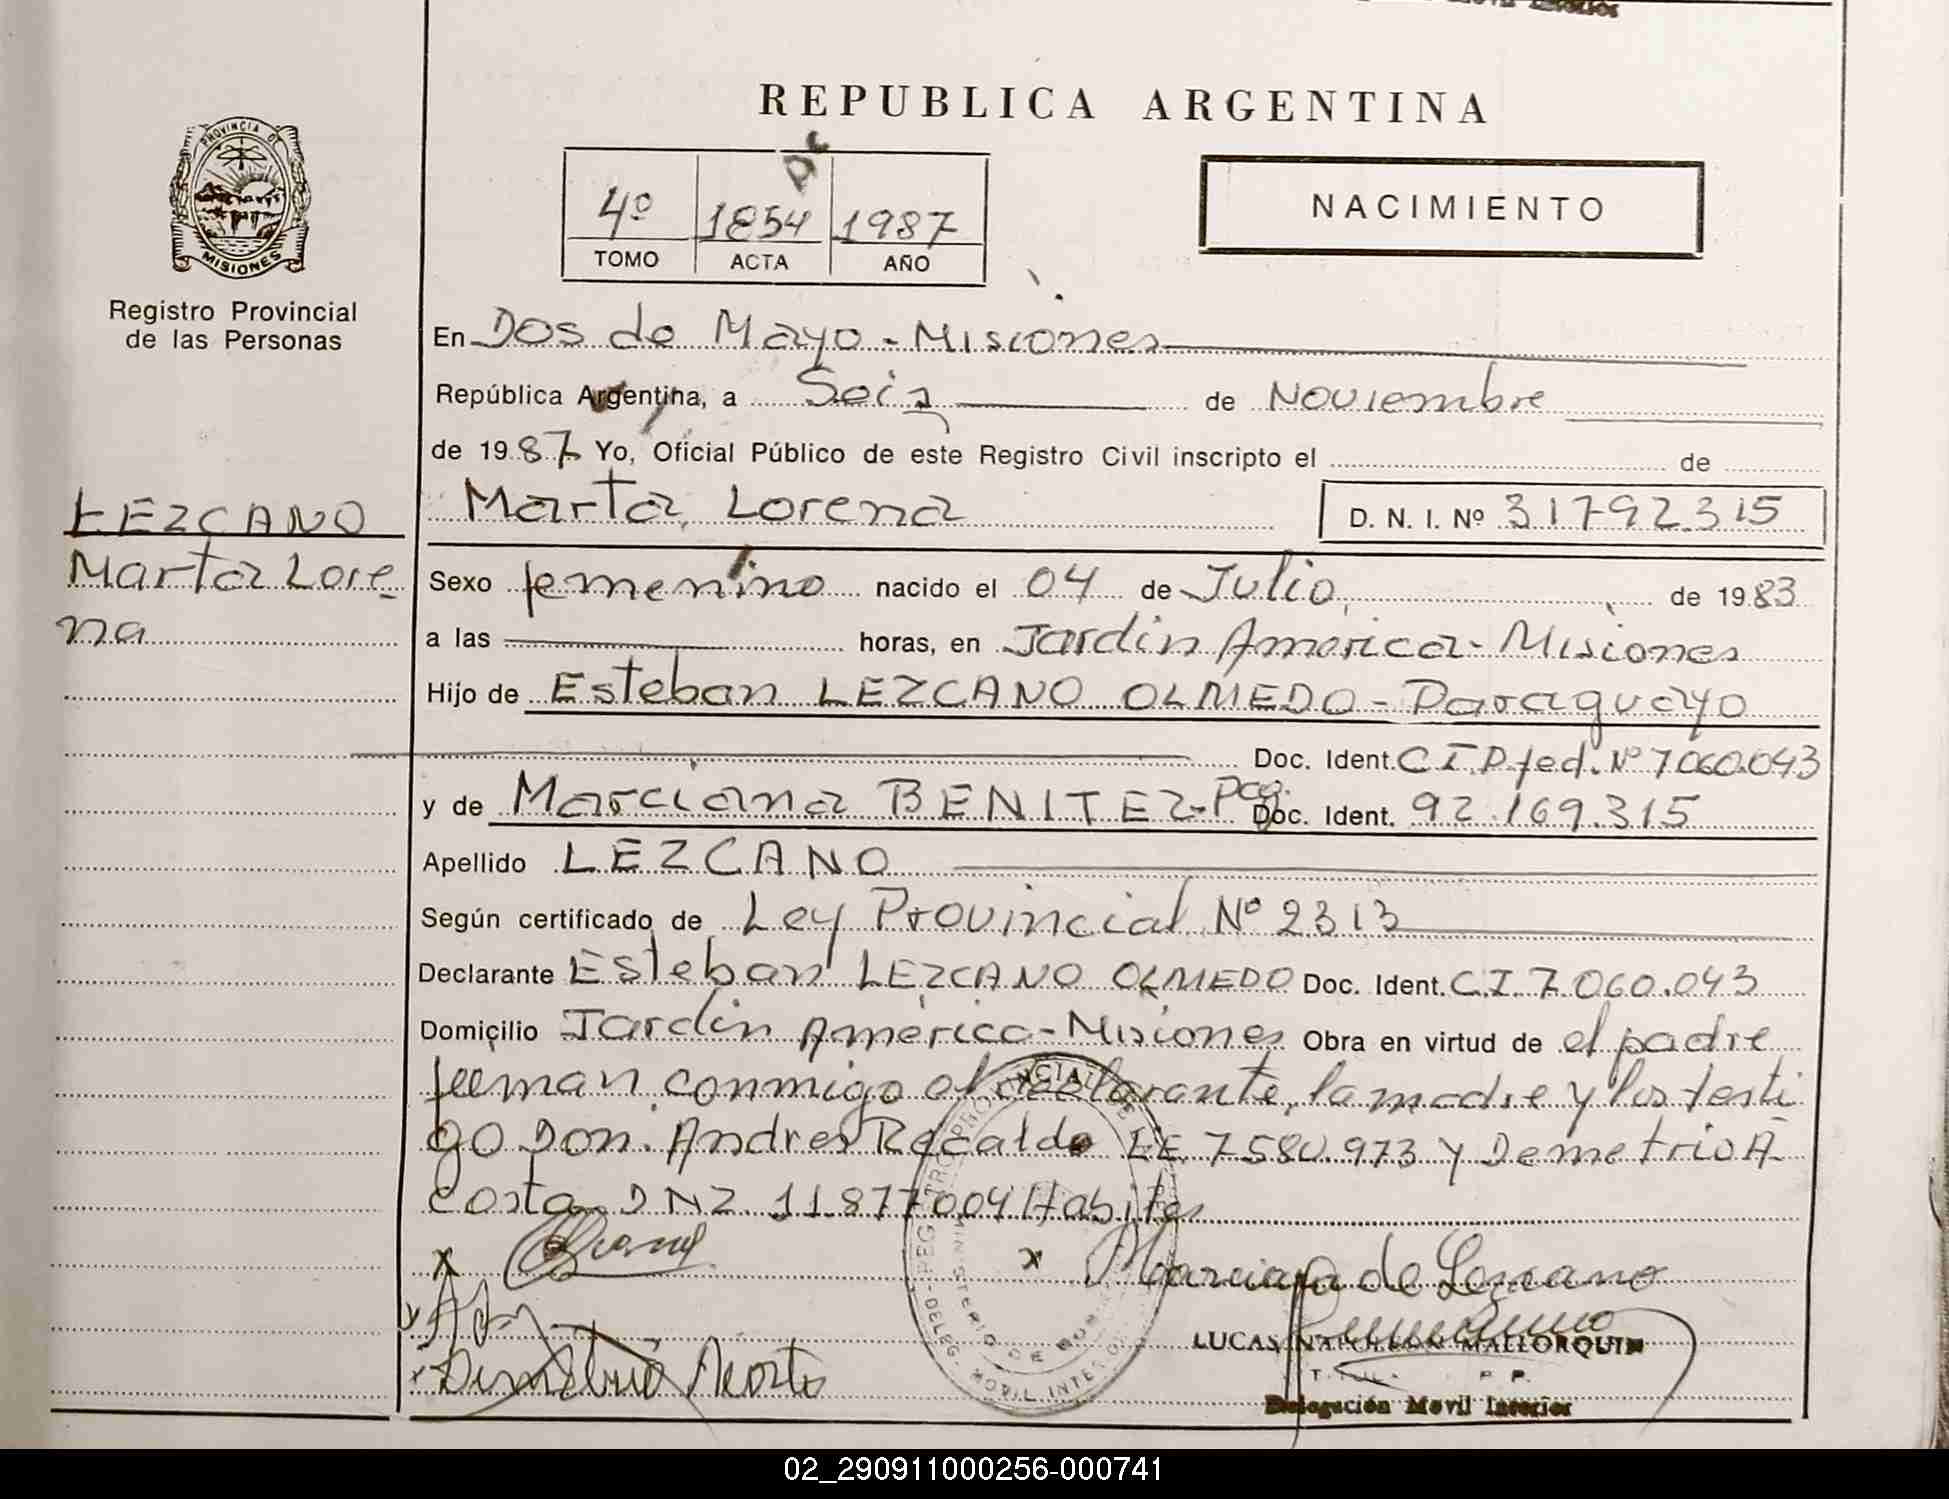 REPUBLICA ARGENTINA
PROVINCIA DE
MISIONES
Registro Provincial
de las Personas
4º 1854 1987
TOMO ACTA AÑO
NACIMIENTO
En Dos de Mayo - Misiones
República Argentina, a Seis de Noviembre
de 1987 Yo, Oficial Público de este Registro Civil inscripto el de
Marta, Lorena D. N. I. Nº 31792315
LEZCANO
Marta Lore-
na
Sexo femenino nacido el 04 de Julio de 1983
a las horas, en Jardín América - Misiones
Hijo de Esteban LEZCANO OLMEDO - Paraguayo
Doc. Ident. C I P. fed. Nº 7060.043
y de Marciana BENITEZ - Pag. Doc. Ident. 92.169.315
Apellido LEZCANO
Según certificado de Ley Provincial Nº 2313
Declarante Esteban LEZCANO OLMEDO Doc. Ident. C.I. 7.060.043
Domicilio Jardín América - Misiones Obra en virtud de el padre
firman conmigo el declarante, la madre y los testi
go Don. Andres Recalde LE. 7580.973 y Demetrio A-
costa DNI. 11.877004 Habiles
x x Marciana de Lezcano
Demetrio Acosta
LUCAS NAPOLEON MALLORQUIN
Delegación Movil Interior
02_290911000256-000741